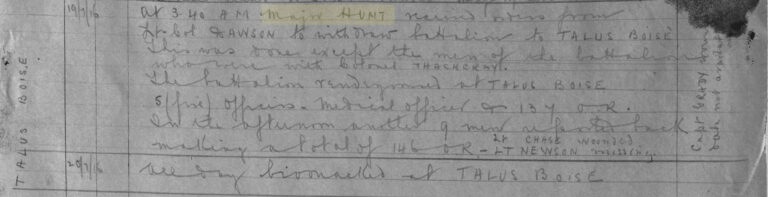 19/7/16
TALUS BOISE
At 3.40 AM Major HUNT received orders from
Lt Col DAWSON to withdraw battalion to TALUS BOISE
This was done except the men of the battalion
who were with Colonel THACKERAY.
The battalion rendezvoused at TALUS BOISE
5 (five) Officers - Medical Officer & 137 O.R.
In the afternoon another 9 men reported back
making a total of 146 O.R. - Lt CHASE wounded
LT NEWSON missing
20/7/16
All day bivouacked at TALUS BOISE
Capt GRADY
but not